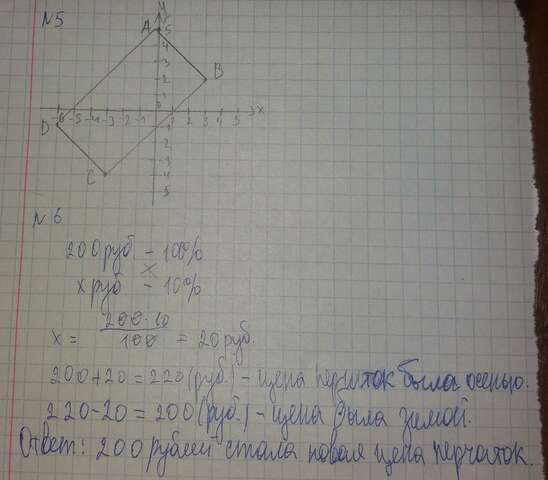 N5
y
A 5
4
3
2 B
1
-6 -5 -4 -3 -2 -1 0 1 2 3 4 5 x
D -1
-2
-3
C -4
-5
N 6
200 руб - 100%
x
x руб - 10%
x = 200·10 / 100 = 20 руб.
200+20 = 220 (руб.) - цена перчаток была осенью.
220-20 = 200 (руб.) - цена была зимой.
Ответ: 200 рублей стала новая цена перчаток.